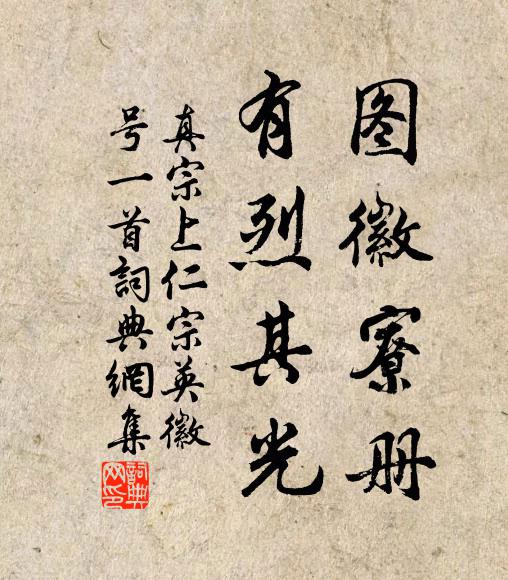 图徽寮册
有烈其光
真宗上仁宗英徽
号一首詞典網集
詞典網印